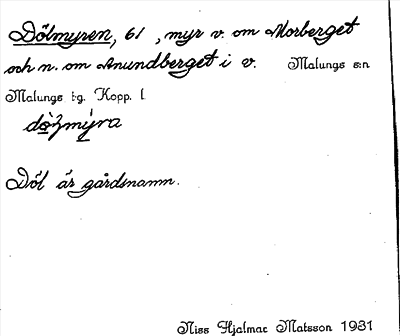 Dölmyren, 61, myr v. om Morberget
och n. om Anundberget i v. Malungs s:n
Malungs t:g. Kopp. l.
dölmýra
Döl är gårdsnamn.
Miss Hjalmar Matsson 1931